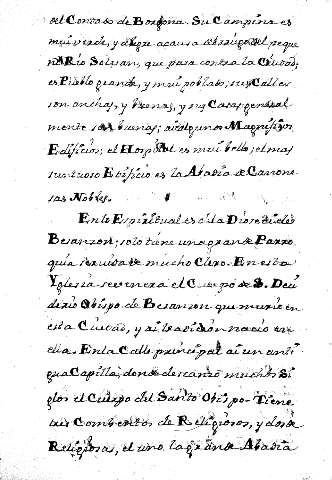 del Condado de Borgoña. Su Campiña es
mui verde, y alegre a causa del riego del peque
ño Rio Selvan, que pasa contra la Ciudad,
es Pueblo grande, y mui poblado; sus Calles
son anchas, y buenas, y sus Casas general
mente son buenas; ai algunos Magnificos
Edificios; el Hospital es mui bello; el mas
suntuoso Edificio es la Abadia de Canone
sas Nobles.
En lo Espiritual es de la Diocesi de
Besanzon; solo tiene una grande Parro
quia servida de mucho Clero. En esta
Yglesia se venera el Cuerpo de S. Desi
derio Obispo de Besanzon que murio en
esta Ciudad, y ai tradicion nacio en
ella. En la Calle principal ai un anti
gua Capilla, donde descanzó muchos Si
glos el Cuerpo del Santo Obispo. Tiene
tres Combentos de Religiosos, y dos de
Religiosas, el uno la grande Abadia